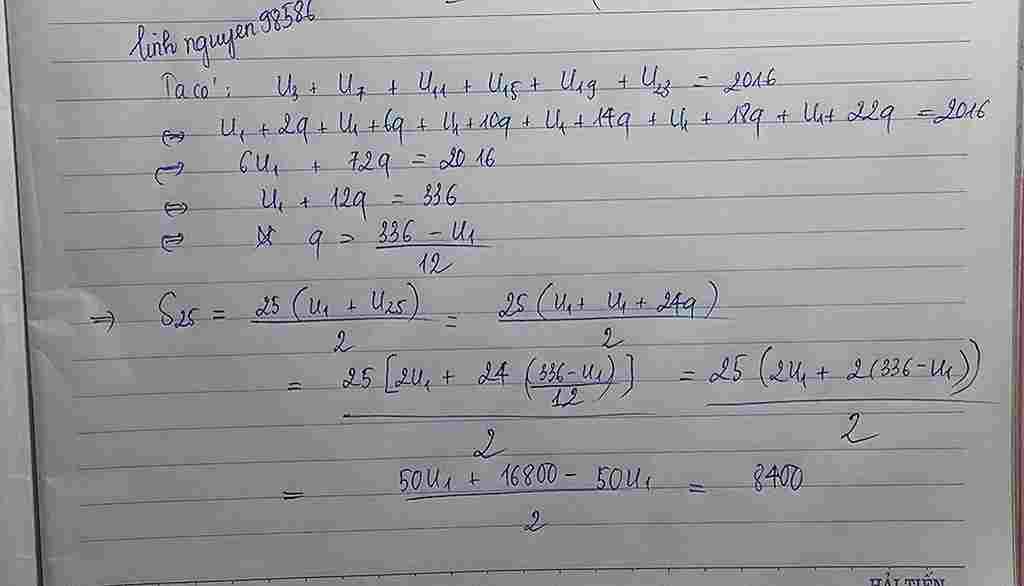 linh nguyen 98586
Ta có: U₃ + U₇ + U₁₁ + U₁₅ + U₁₉ + U₂₃ = 2016
⇔ U₁ + 2q + U₁ + 6q + U₁ + 10q + U₁ + 14q + U₁ + 18q + U₁ + 22q = 2016
⇔ 6U₁ + 72q = 2016
⇔ U₁ + 12q = 336
⇔ q = (336 - U₁)/12
⇒ S₂₅ = 25(U₁ + U₂₅)/2 = 25(U₁ + U₁ + 24q)/2
= 25[2U₁ + 24((336 - U₁)/12)]/2 = 25(2U₁ + 2(336 - U₁))/2
= (50U₁ + 16800 - 50U₁)/2 = 8400
HẢI TIẾN